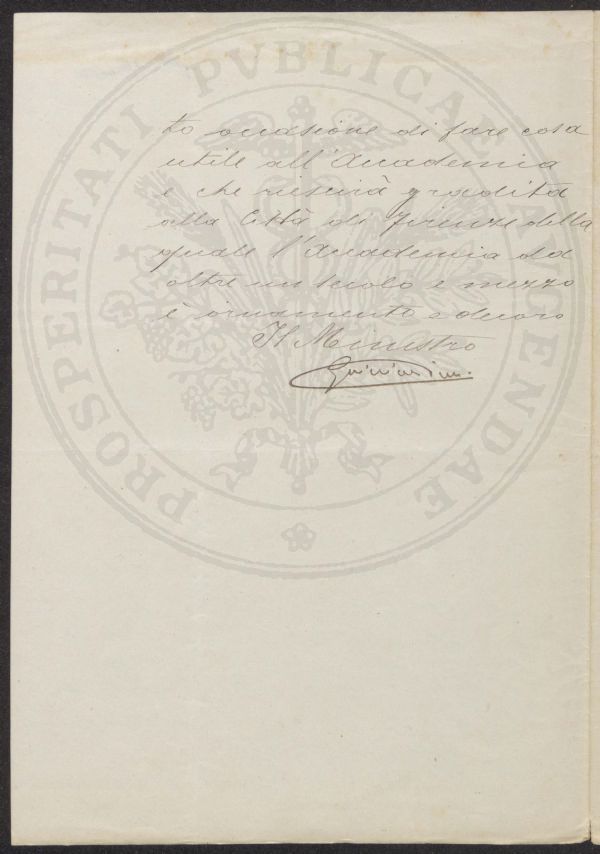 PROSPERITATI PVBLICAE AVGENDAE
to occasione di fare cosa
utile all'Accademia
e che riescirà gradita
alla Città di Firenze della
quale l'Accademia da
oltre un secolo e mezzo
è ornamento e decoro
Il Ministro